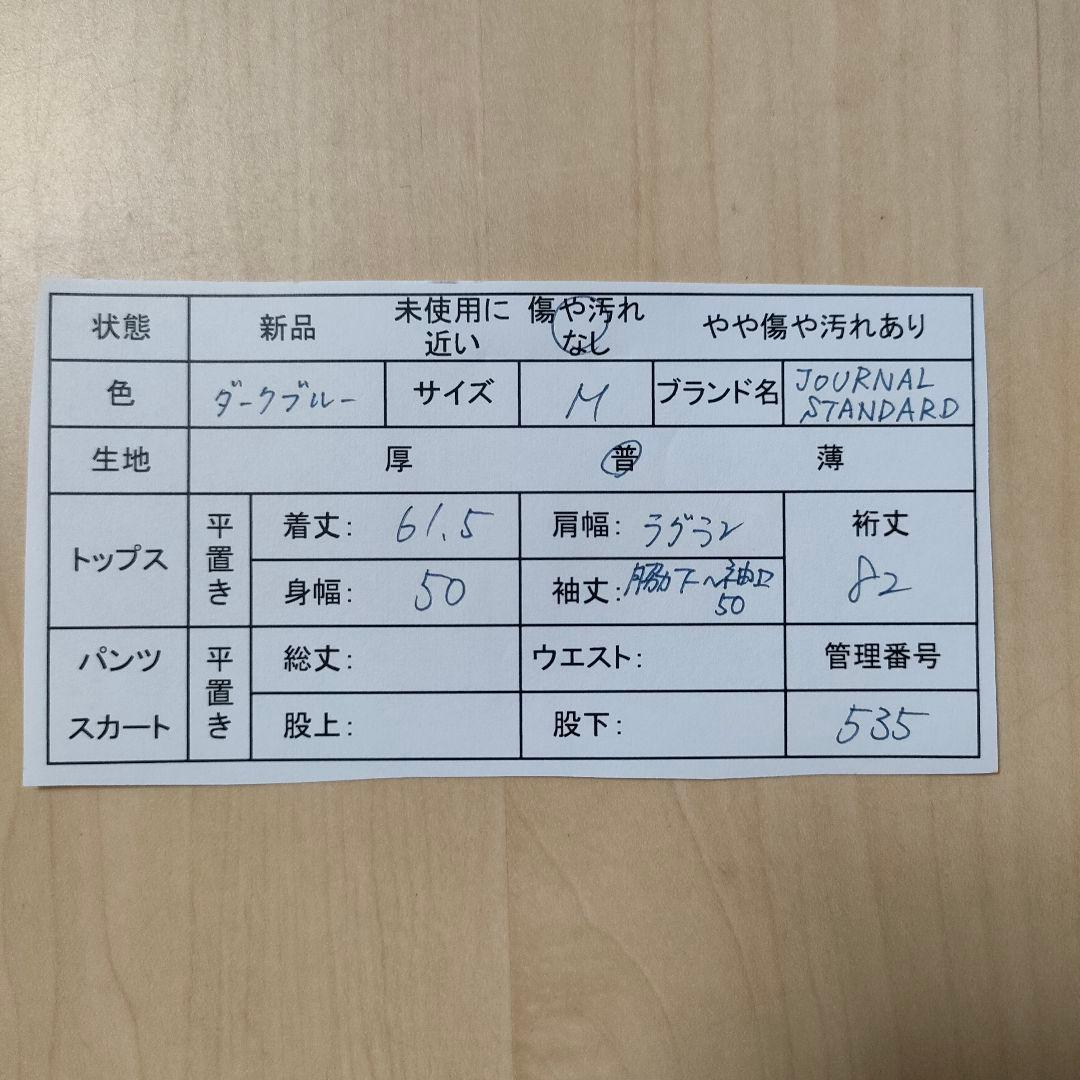 状態 新品 未使用に 傷や汚れ やや傷や汚れあり
近い なし
色 ダークブルー サイズ M ブランド名 JOURNAL
STANDARD
生地 厚 普 薄
トップス 平置き 着丈: 61.5 肩幅: ラグラン 裄丈
身幅: 50 袖丈: 脇下~袖口 82
50
パンツ 平置き 総丈: ウエスト: 管理番号
スカート 股上: 股下: 535